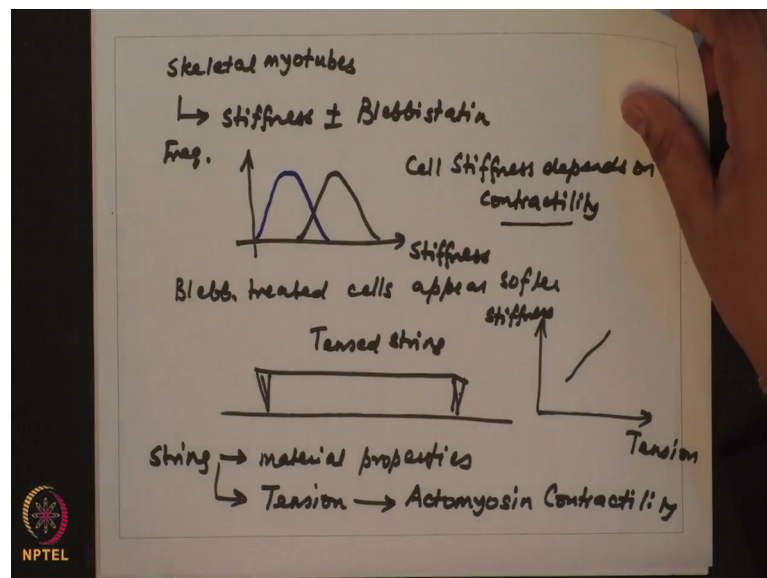 Skeletal myotubes
↳ Stiffness ± Blebbistatin
Freq.
Cell Stiffness depends on
Contractility
Stiffness
Blebb. treated cells appear softer
Stiffness
Tensed string
Tension
String → material properties
↳ Tension → Actomyosin Contractility
NPTEL